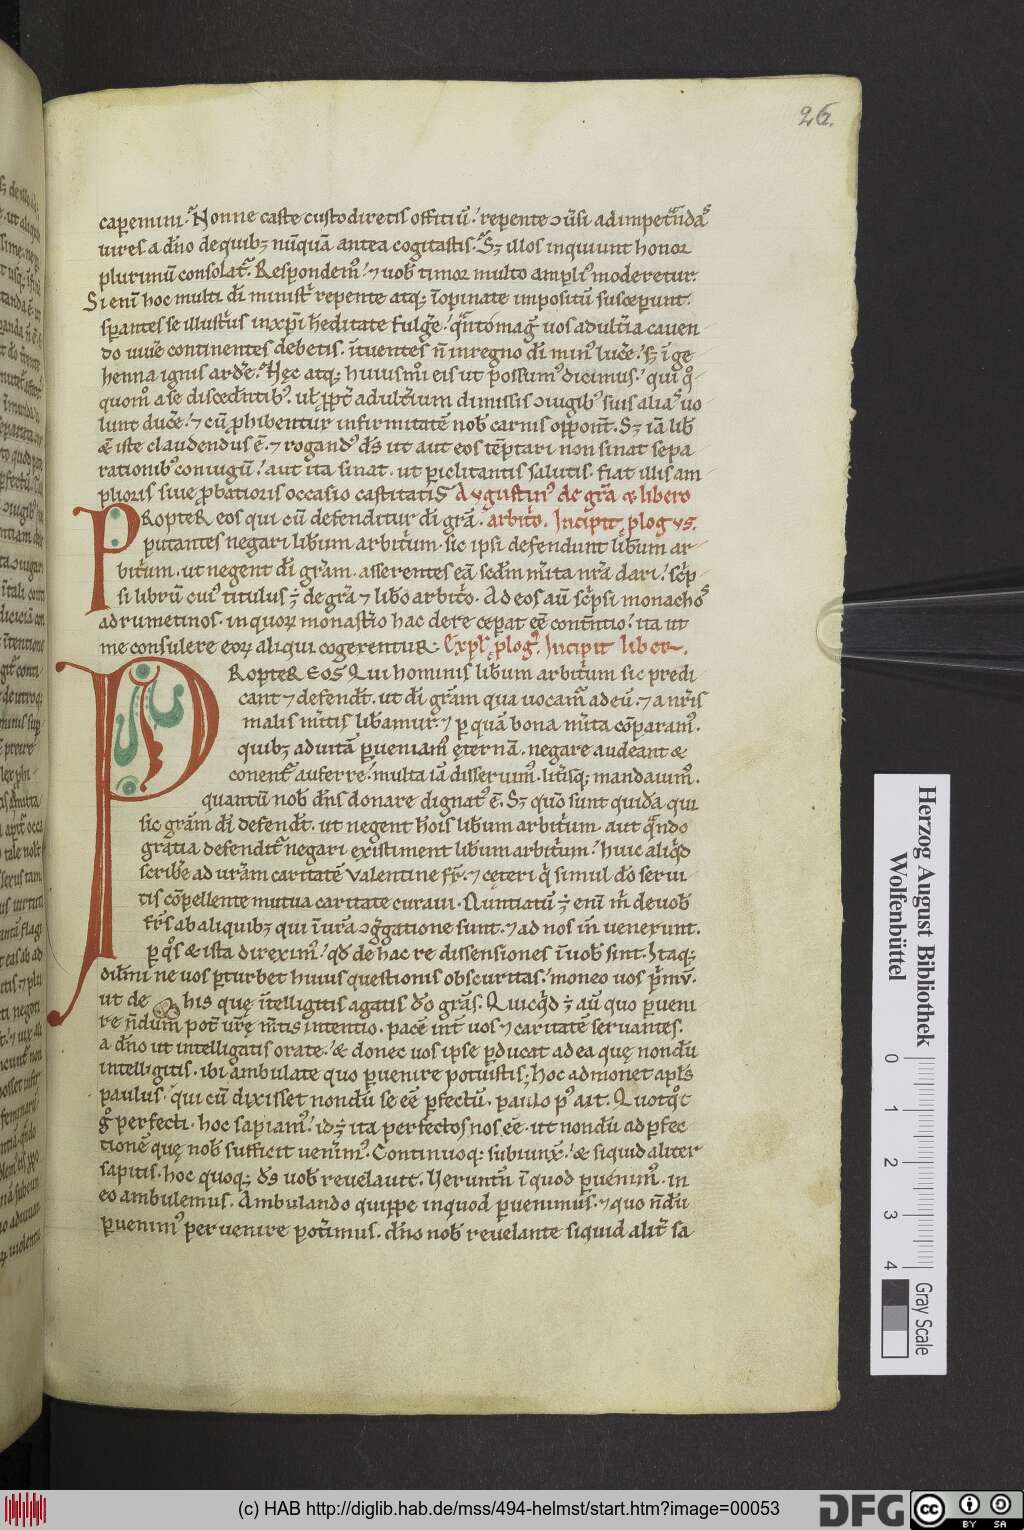 26.
capemini. Nonne caste custodiretis offitiū. repente ɔuersi ad impetrandas
uires a dn̄o de quibꝫ nūquā antea cogitastis. Sꝫ illos inquiunt honor
plurimū consolat̃. Respondem᷒. ⁊ uob̄ timor multo ampli᷒ moderetur.
Si enī hoc multi dī ministr̄ repente atqꝫ īopinate impositū susceperunt.
sperantes se illustri᷒ in xp̄i hēditate fulgēr. qñto mag̃ uos adult̃ia cauen
do uiuēre continentes debetis. ītuentes n̄ in regno dī min᷒ lucēre. sꝫ ī ge
henna ignis ardēre. Hęc atqꝫ huiusmōi eis ut possum᷒ dicimus. qui q᷒
quom̊ a se discedentib᷒. ul̄ ꝓpt̃ adult̃ium dimissis ɔiugib᷒ suis alias uo
lunt ducēre. ⁊ cū ꝓhibentur infirmitatē nob̄ carnis opponūt. Sꝫ iā lib̄
& iste claudendus ē. ⁊ rogand᷒ d̄s ut aut eos tēptari non sinat sepa
rationib᷒ coniugū. aut ita sinat. ut ꝑiclitantis salutis. fiat illis am
plioris siue ꝓbatioris occasio castitatis Augustin᷒ de grā & libero
Propter eos qui cū defenditur dī grā. arbitrō. Incipit ꝓlogus.
putantes negari lib̃um arbit̃um. sic ipsi defendunt lib̃um ar
bit̃um. ut negent dī grām. asserentes eā scdm̄ m̃ita nr̄a dari. sc̃p
si librū cui᷒ titulus ē de grā ⁊ lib̃o arbit̃o. Ad eos aū sc̃psi monachos
adrumetinos. in quoꝝ monast̃io hac de re ceperat eē contētio. ita ut
me consulere eoꝝ aliqui cogerentur. Expl̄ ꝓlog᷒. Incipit liber.
Propter eos qui hominis lib̃um arbit̃um sic predi
cant ⁊ defendt̄. ut dī grām qua uocam᷒ ad eū. ⁊ a nr̄is
malis m̃itis lib̃amur. ⁊ ꝑ quā bona m̃ita cōparam᷒.
quibꝫ ad uitā ꝑueniam᷒ ęternā. negare audeant &
conent̃ auferre. multa iā disseruim᷒. lit̃isqꝫ mandauim᷒.
quantū nob̄ dn̄s donare dignat᷒ ē. Sꝫ quō sunt quidā qui
sic grām dī defendt̄. ut negent hōis lib̃um arbit̃um. aut qñdo
gratia defendit̃ negari existiment lib̃um arbit̃um. huic aliq̄d
scrib̃e ad ur̄am caritatē Valentine fr̄. ⁊ cęteri q̄ simul dō serui
tis cōpellente mutua caritate curaui. Nuntiatū ē enī m̄ de uob̄
fr̄s ab aliquibꝫ qui ī ur̄a ɔg̃gatione sunt. ⁊ ad nos īn uenerunt.
ꝑ q᷒s & ista direxim᷒. qd̄ de hac re dissensiones ī uob̄ sint. Itaqꝫ
dil̄mi ne uos ꝑturbet huius questionis obscuritas. moneo uos p̄mū.
ut de his quę ītelligitis agatis dō grās. Quicq̄d ē aū quo ꝑueni
re n̄dum pot̃ ur̄ę m̄tis intentio. pacē int̃ uos ⁊ caritatē seruantes.
a dn̄o ut intelligatis orate. & donec uos ipse ꝑducat ad ea quę nondū
intelligitis. ibi ambulate quo ꝑuenire potuistis. hoc admonet apl̄s
paulus. qui cū dixisset nondū se eē ꝑfectū. paulo p᷒ ait. Quotq̊t
g̊ perfecti. hoc sapiam᷒. id ē ita perfectos nos eē. ut nondū ad ꝑfec
tionē quę nob̄ sufficit uenim᷒. Continuoqꝫ subiunx̄. & siquid aliter
sapitis. hoc quoqꝫ d̄s uob̄ reuelauit. Verunt̄n ī quod ꝑuenim᷒. in
eo ambulemus. Ambulando quippe in quod ꝑuenimus. ⁊ quo n̄dū
ꝑuenim᷒ peruenire pot̃imus. dn̄o nob̄ reuelante siquid alit̃ sa
Herzog August Bibliothek
Wolfenbüttel
0 1 2 3 4
Gray Scale
(c) HAB http://diglib.hab.de/mss/494-helmst/start.htm?image=00053
DFG
cc BY SA